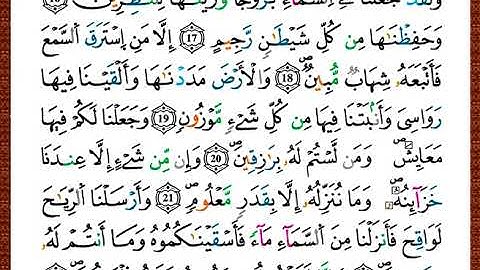 وَلَقَدْ جَعَلْنَا فِي اِ۬لسَّمَآءِ بُرُوجاٗ وَزَيَّنَّٰهَا لِلنَّٰظِرِينَ 16
وَحَفِظْنَٰهَا مِن كُلِّ شَيْطَٰنٖ رَّجِيمٍ 17 اِلَّا مَنِ اِ۪سْتَرَقَ اَ۬لسَّمْعَ
فَأَتْبَعَهُۥ شِهَابٞ مُّبِينٞۖ 18 وَالْأَرْضَ مَدَدْنَٰهَا وَأَلْقَيْنَا فِيهَا
رَوَٰسِيَ وَأَنۢبَتْنَا فِيهَا مِن كُلِّ شَےْءٖ مَّوْزُونٖۖ 19 وَجَعَلْنَا لَكُمْ فِيهَا
مَعَٰيِشَۖ وَمَن لَّسْتُمْ لَهُۥ بِرَٰزِقِينَۖ 20 وَإِن مِّن شَےْءٍ اِلَّا عِندَنَا
خَزَآئِنُهُۥۖ وَمَا نُنَزِّلُهُۥٓ إِلَّا بِقَدَرٖ مَّعْلُومٖۖ 21 وَأَرْسَلْنَا اَ۬لرِّيَٰحَ
لَوَٰقِحَ فَأَنزَلْنَا مِنَ اَ۬لسَّمَآءِ مَآءٗ فَأَسْقَيْنَٰكُمُوهُ وَمَآ أَنتُمْ لَهُۥ